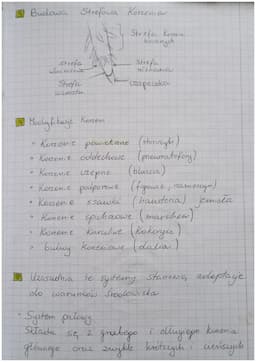 Budowa Strefowa Korzenia
Strefa korzeni
bocznych
strefa
Strefa
włośnikowa
Strefa
wzrostu
czapeczka
Modyfikacje korzeni
• Korzenie powietrzne (storczyki)
• Korzenie oddechowe (pneumatofory)
• Korzenie czepne (bluszcz)
• Korzenie podporowe (figowiec, namorzyn)
• Korzenie ssawki (haustoria) jemioła
• Korzenie spichrzowe (marchew)
• Korzenie
• bulwy korzeniowe (dalia)
Uzasadnia że systemy stanowią adaptacje
do warunków środowiska
• System palowy
Składa się z grubego i długiego korzenia
głównego oraz zwykle krótszych i cieńszych